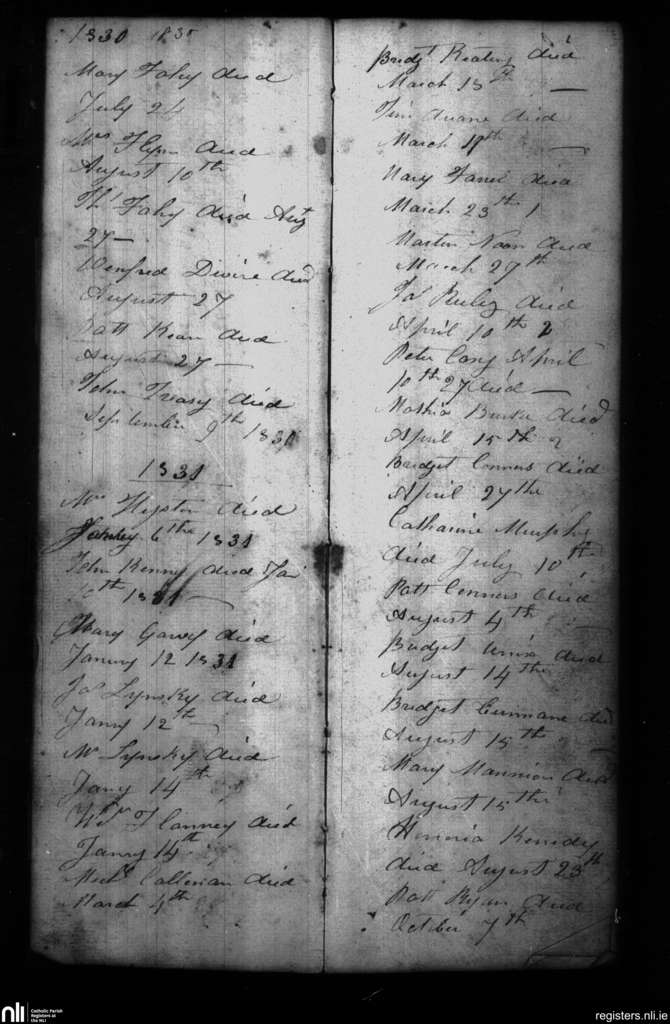 1830 1830
Mary Fahy died
July 24
Mrs Flynn died
August 10th
Th Fahy died Aust
27
Wenfred Divire died
August 27
Patt Kean died
August 27
John Treasy died
September 9th 1830
1831
Mrs died
6th 1831
John Kenny died Jan
1831
Mary Gavey died
Janury 12 1831
Js Lynsky died
Janry 12th
Mr Lynsky died
Jany 14th
Flannery died
Janry 14th
Michl Callenan died
March 4th
Bridgt Keating died
March 15th
Tim duane died
March
Mary died
March 23th
Martin Noon died
March 27th
Js died
April 10th
Peter April
10th 27 died
Burke died
April 15th
Bridget Conners died
April 27the
Catharine Murphy
died July 10th
Patt Conners died
August 4th
Bridget died
August 14th
Bridget Cunnane died
August 15th
Mary Mannion died
August 15th
Honoria Kennedy
died August 23th
Patt Ryan died
October 7th
nli
Catholic Parish
Registers at
the NLI
registers.nli.ie